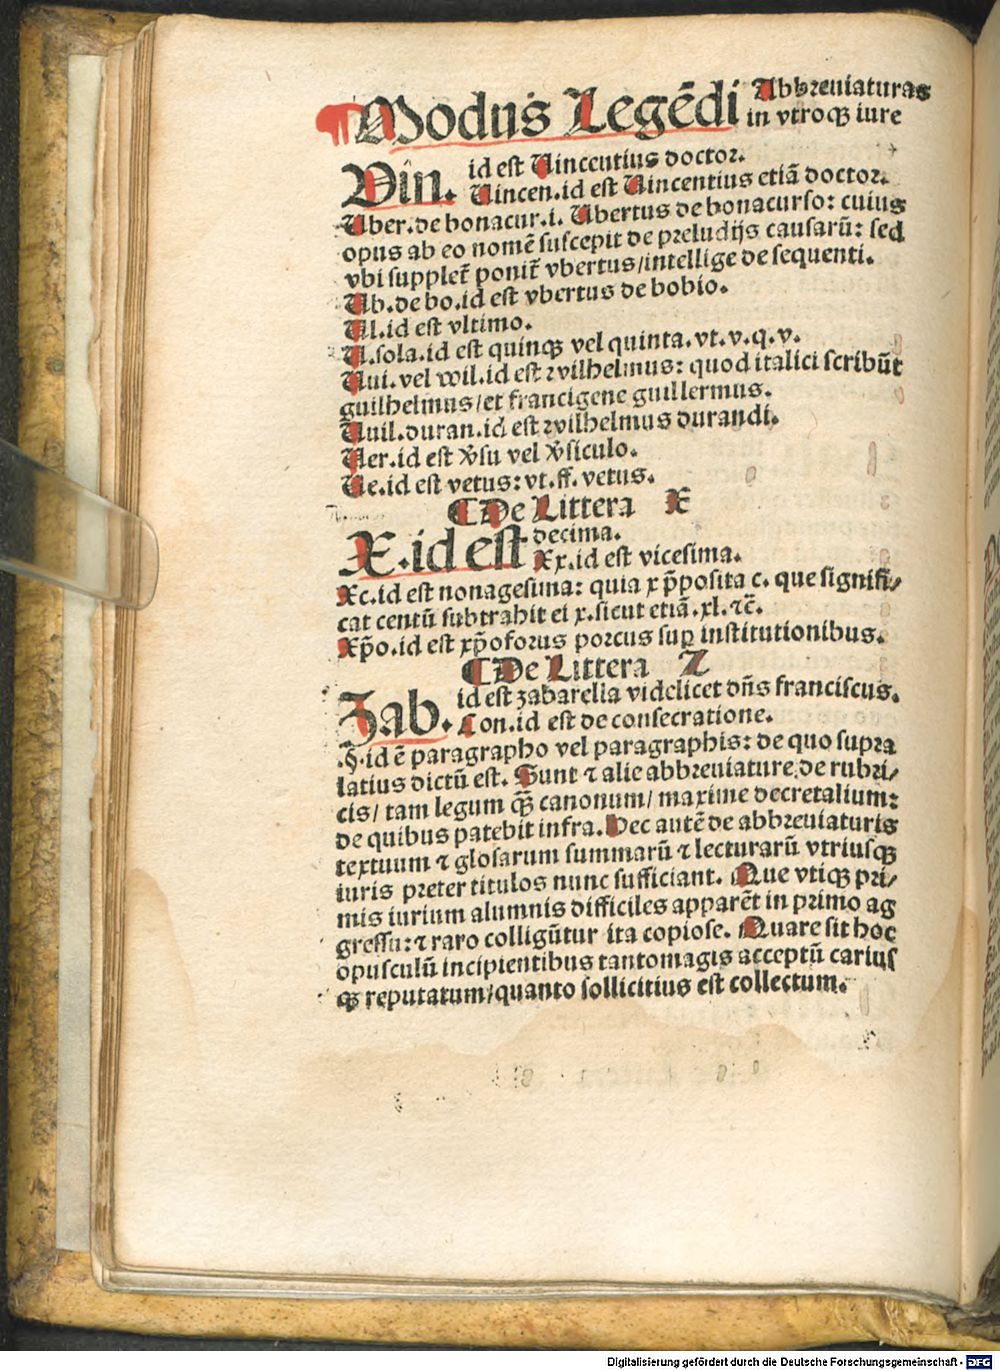 Modus Legēdi Abbreuiaturas
in vtroqꝫ iure
Vin. id est Uincentius doctor.
Uincen.id est Uincentius etiā doctor.
Uber.de bonacur.i. Ubertus de bonacurso: cuius
opus ab eo nomē suscepit de preludijs causarū: sed
vbi supplet̄ ponit̄ vbertus/intellige de sequenti.
Ub.de bo.id est vbertus de bobio.
Ul.id est vltimo.
U.sola.id est quinqꝫ vel quinta.vt.v.q.v.
Uui.vel wil.id est vvilhelmus: quod italici scribūt
guilhelmus/et francigene guillermus.
Uuil.duran.id est vvilhelmus durandi.
Uer.id est v̄su vel v̄siculo.
Ue.id est vetus: vt.ff.vetus.
¶ De Littera X
X.id est decima.
Xx.id est vicesima.
Xc.id est nonagesima: quia x p̄posita c. que signifi/
cat centū subtrahit ei x.sicut etiā.xl.⁊c̄.
Xp̄o.id est xp̄oforus porcus suꝑ institutionibus.
¶ De Littera Z
Zab. id est zabarella videlicet dn̄s franciscus.
Con.id est de consecratione.
.§.id ē paragrapho vel paragraphis: de quo supra
latius dictū est. Sunt ⁊ alie abbreuiature de rubri/
cis/ tam legum qꝫ̄ canonum/ maxime decretalium:
de quibus patebit infra. Hec autē de abbreuiaturis
textuum ⁊ glosarum summarū ⁊ lecturarū vtriusqꝫ
iuris preter titulos nunc sufficiant. Que vtiqꝫ pri/
mis iurium alumnis difficiles apparēt in primo ag
gressu: ⁊ raro colligūtur ita copiose. Quare sit hoc
opusculū incipientibus tantomagis acceptū carius
qꝫ reputatum/quanto sollicitius est collectum.
Digitalisierung gefördert durch die Deutsche Forschungsgemeinschaft - DFG